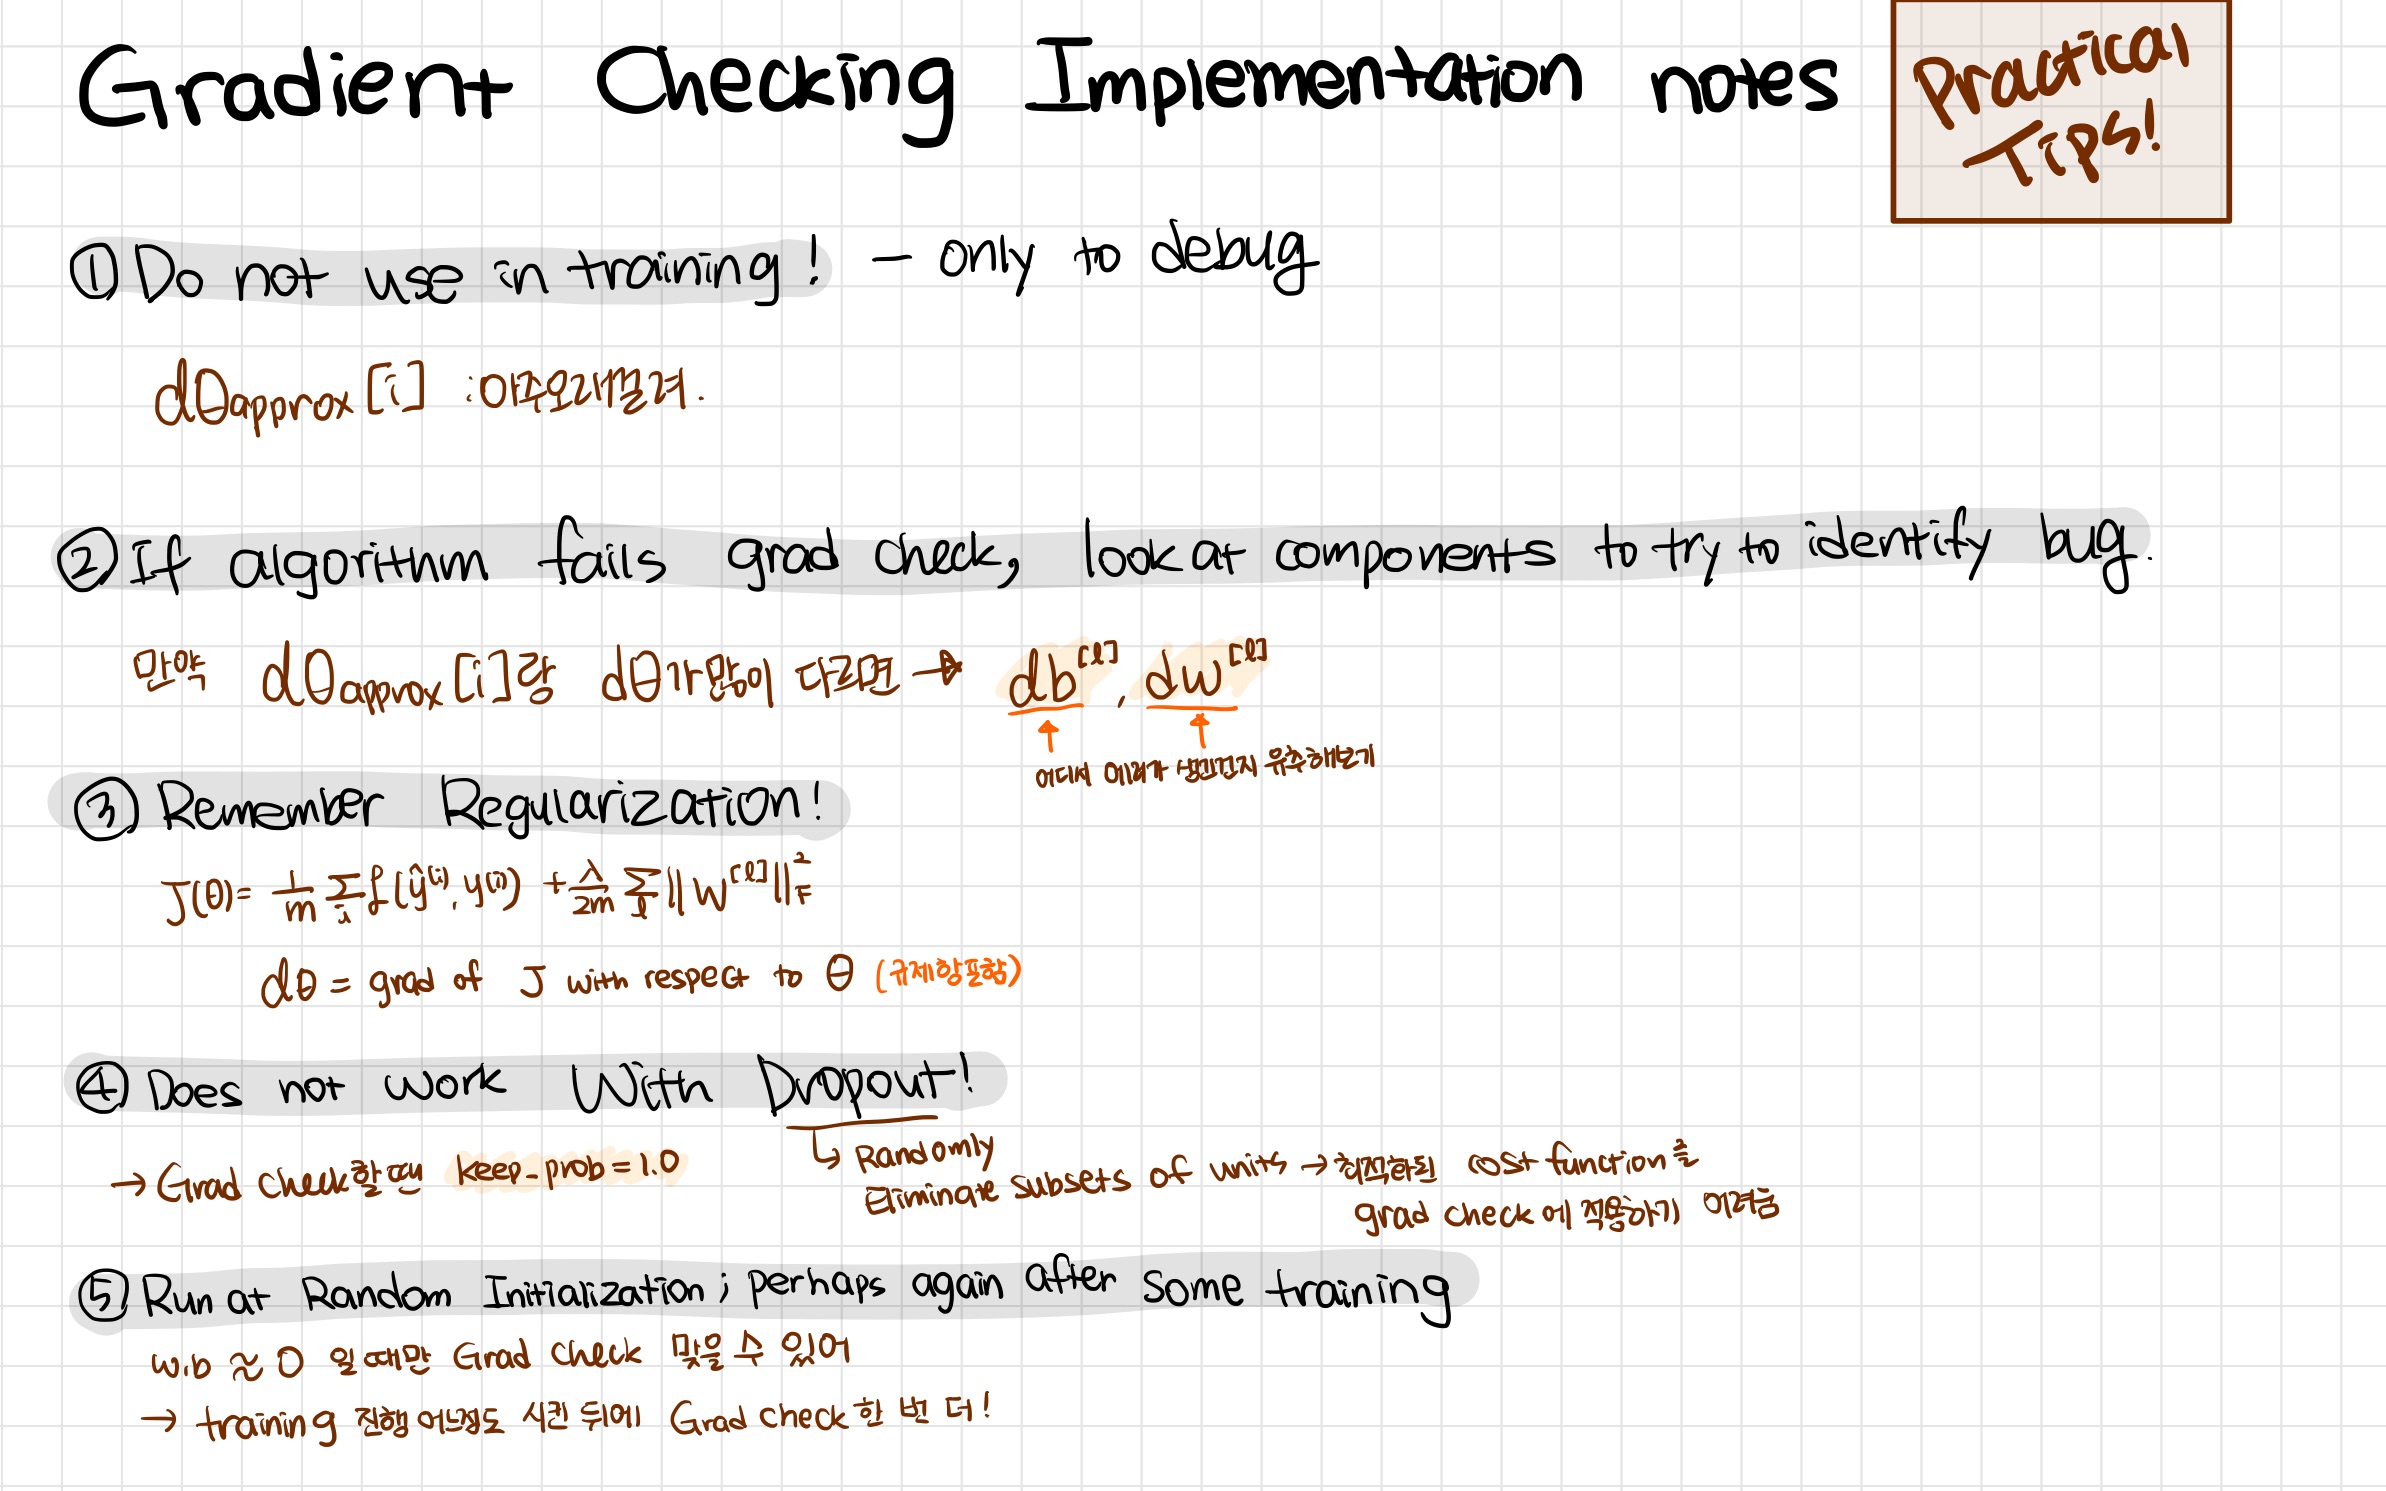 Gradient Checking Implementation notes
Practical
Tips!
① Do not use in training! - only to debug
dθapprox[i] : 아주오래걸려.
② If algorithm fails grad check, look at components to try to identify bug.
만약 dθapprox[i]랑 dθ가많이 다르면 → db[l], dw[l]
어디서 에러가 생긴건지 유추해보기
③ Remember Regularization!
J(θ) = 1/m Σi L(ŷ(i), y(i)) + λ/2m Σl ||W[l]||²F
dθ = grad of J with respect to θ (규제항포함)
④ Does not work With Dropout!
→ Grad check할땐 keep_prob=1.0
↳ Randomly
Eliminate subsets of units → 최적화된 cost function을
grad check에 적용하기 어려움
⑤ Run at Random Initialization; perhaps again after some training
w,b ≈ 0 일때만 Grad check 맞을 수 있어
→ training 진행 어느정도 시킨 뒤에 Grad check 한 번 더!